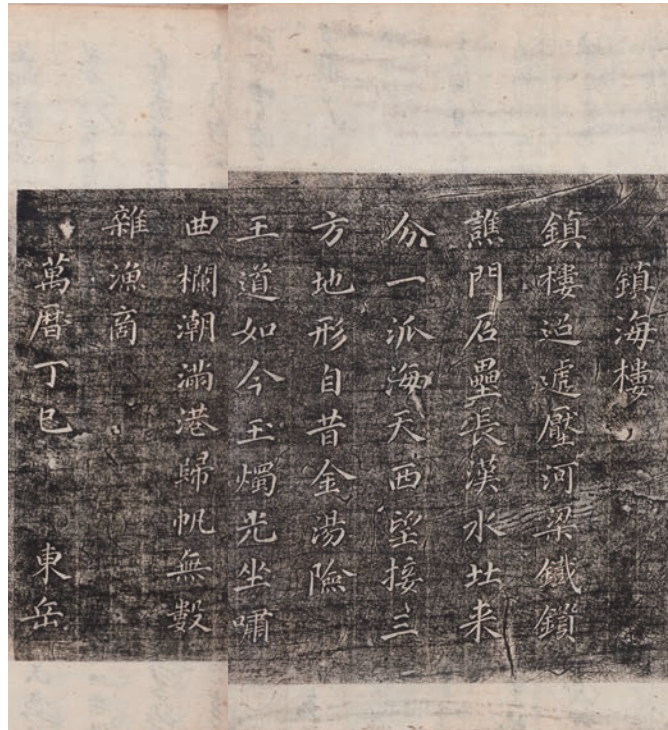 鎮海樓
鎮樓迢遞壓河梁鐵鎖
譙門石壘長漢水北来
分一泒海天西望接三
方地形自昔金湯險
王道如今玉燭光坐嘯
曲欄潮滿港歸帆無數
雜漁商
萬曆丁巳 東岳